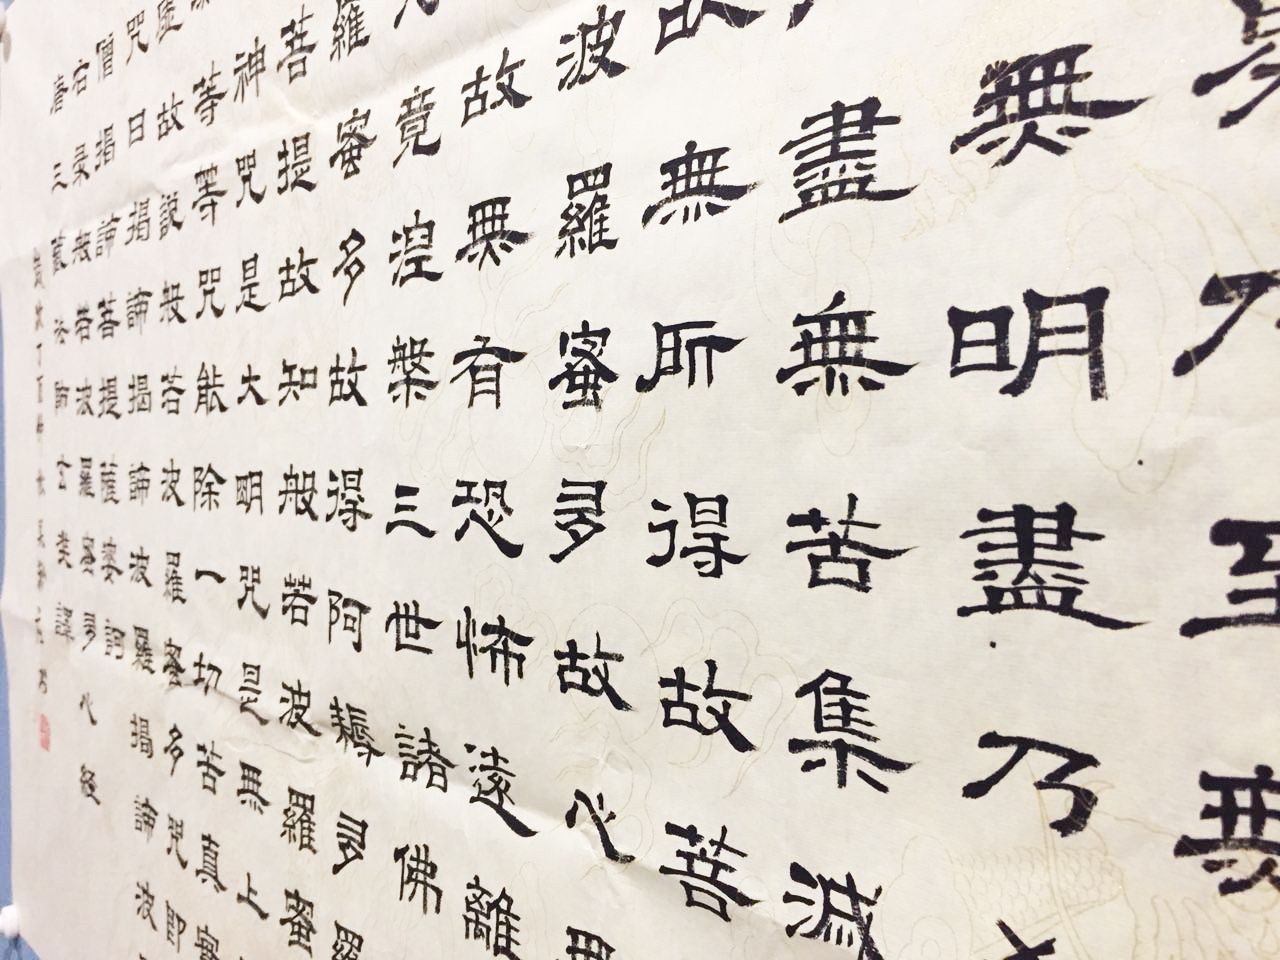 乃至無
無明盡乃
盡無苦集滅
故無所得故菩
波羅蜜多故心無
故無有恐怖遠離
竟涅槃三世諸佛
羅蜜多故得阿耨多羅
菩提故知般若波羅蜜
神咒是大明咒是無上
等等咒能除一切苦真實
故說般若波羅蜜多咒即
咒曰揭諦揭諦波羅揭諦波
僧揭諦菩提薩婆訶
般若波羅蜜多心經
唐三藏法師玄奘譯
歲次丁酉